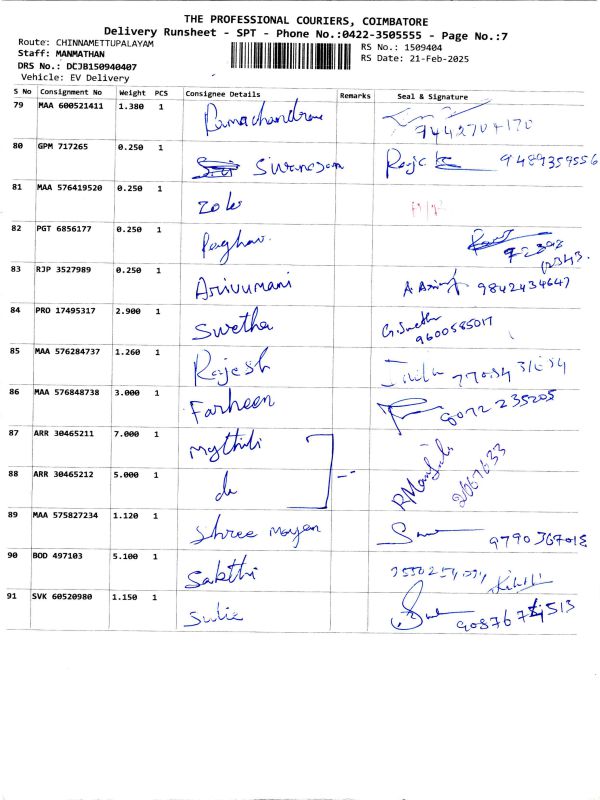 THE PROFESSIONAL COURIERS, COIMBATORE
Delivery Runsheet - SPT - Phone No.:0422-3505555 - Page No.:7
Route: CHINNAMETTUPALAYAM
Staff: MANMATHAN
DRS No.: DCJB150940407
Vehicle: EV Delivery
RS No.: 1509404
RS Date: 21-Feb-2025
S No Consignment No Weight PCS Consignee Details Remarks Seal & Signature
79 MAA 600521411 1.380 1 Ramachandran 7442704170
80 GPM 717265 0.250 1 Sivanesan 9489359556
81 MAA 576419520 0.250 1
82 PGT 6856177 0.250 1 Raghav
83 RJP 3527989 0.250 1 Arivumani 9842434647
84 PRO 17495317 2.900 1 Swetha G.Swetha 9600585017
85 MAA 576284737 1.260 1 Rajesh
86 MAA 576848738 3.000 1 Farheen 8072 235205
87 ARR 30465211 7.000 1 Mythili
88 ARR 30465212 5.000 1 do 2667633
89 MAA 575827234 1.120 1 Shree 9790367018
90 BOD 497103 5.100 1 Sakthi
91 SVK 60520980 1.150 1